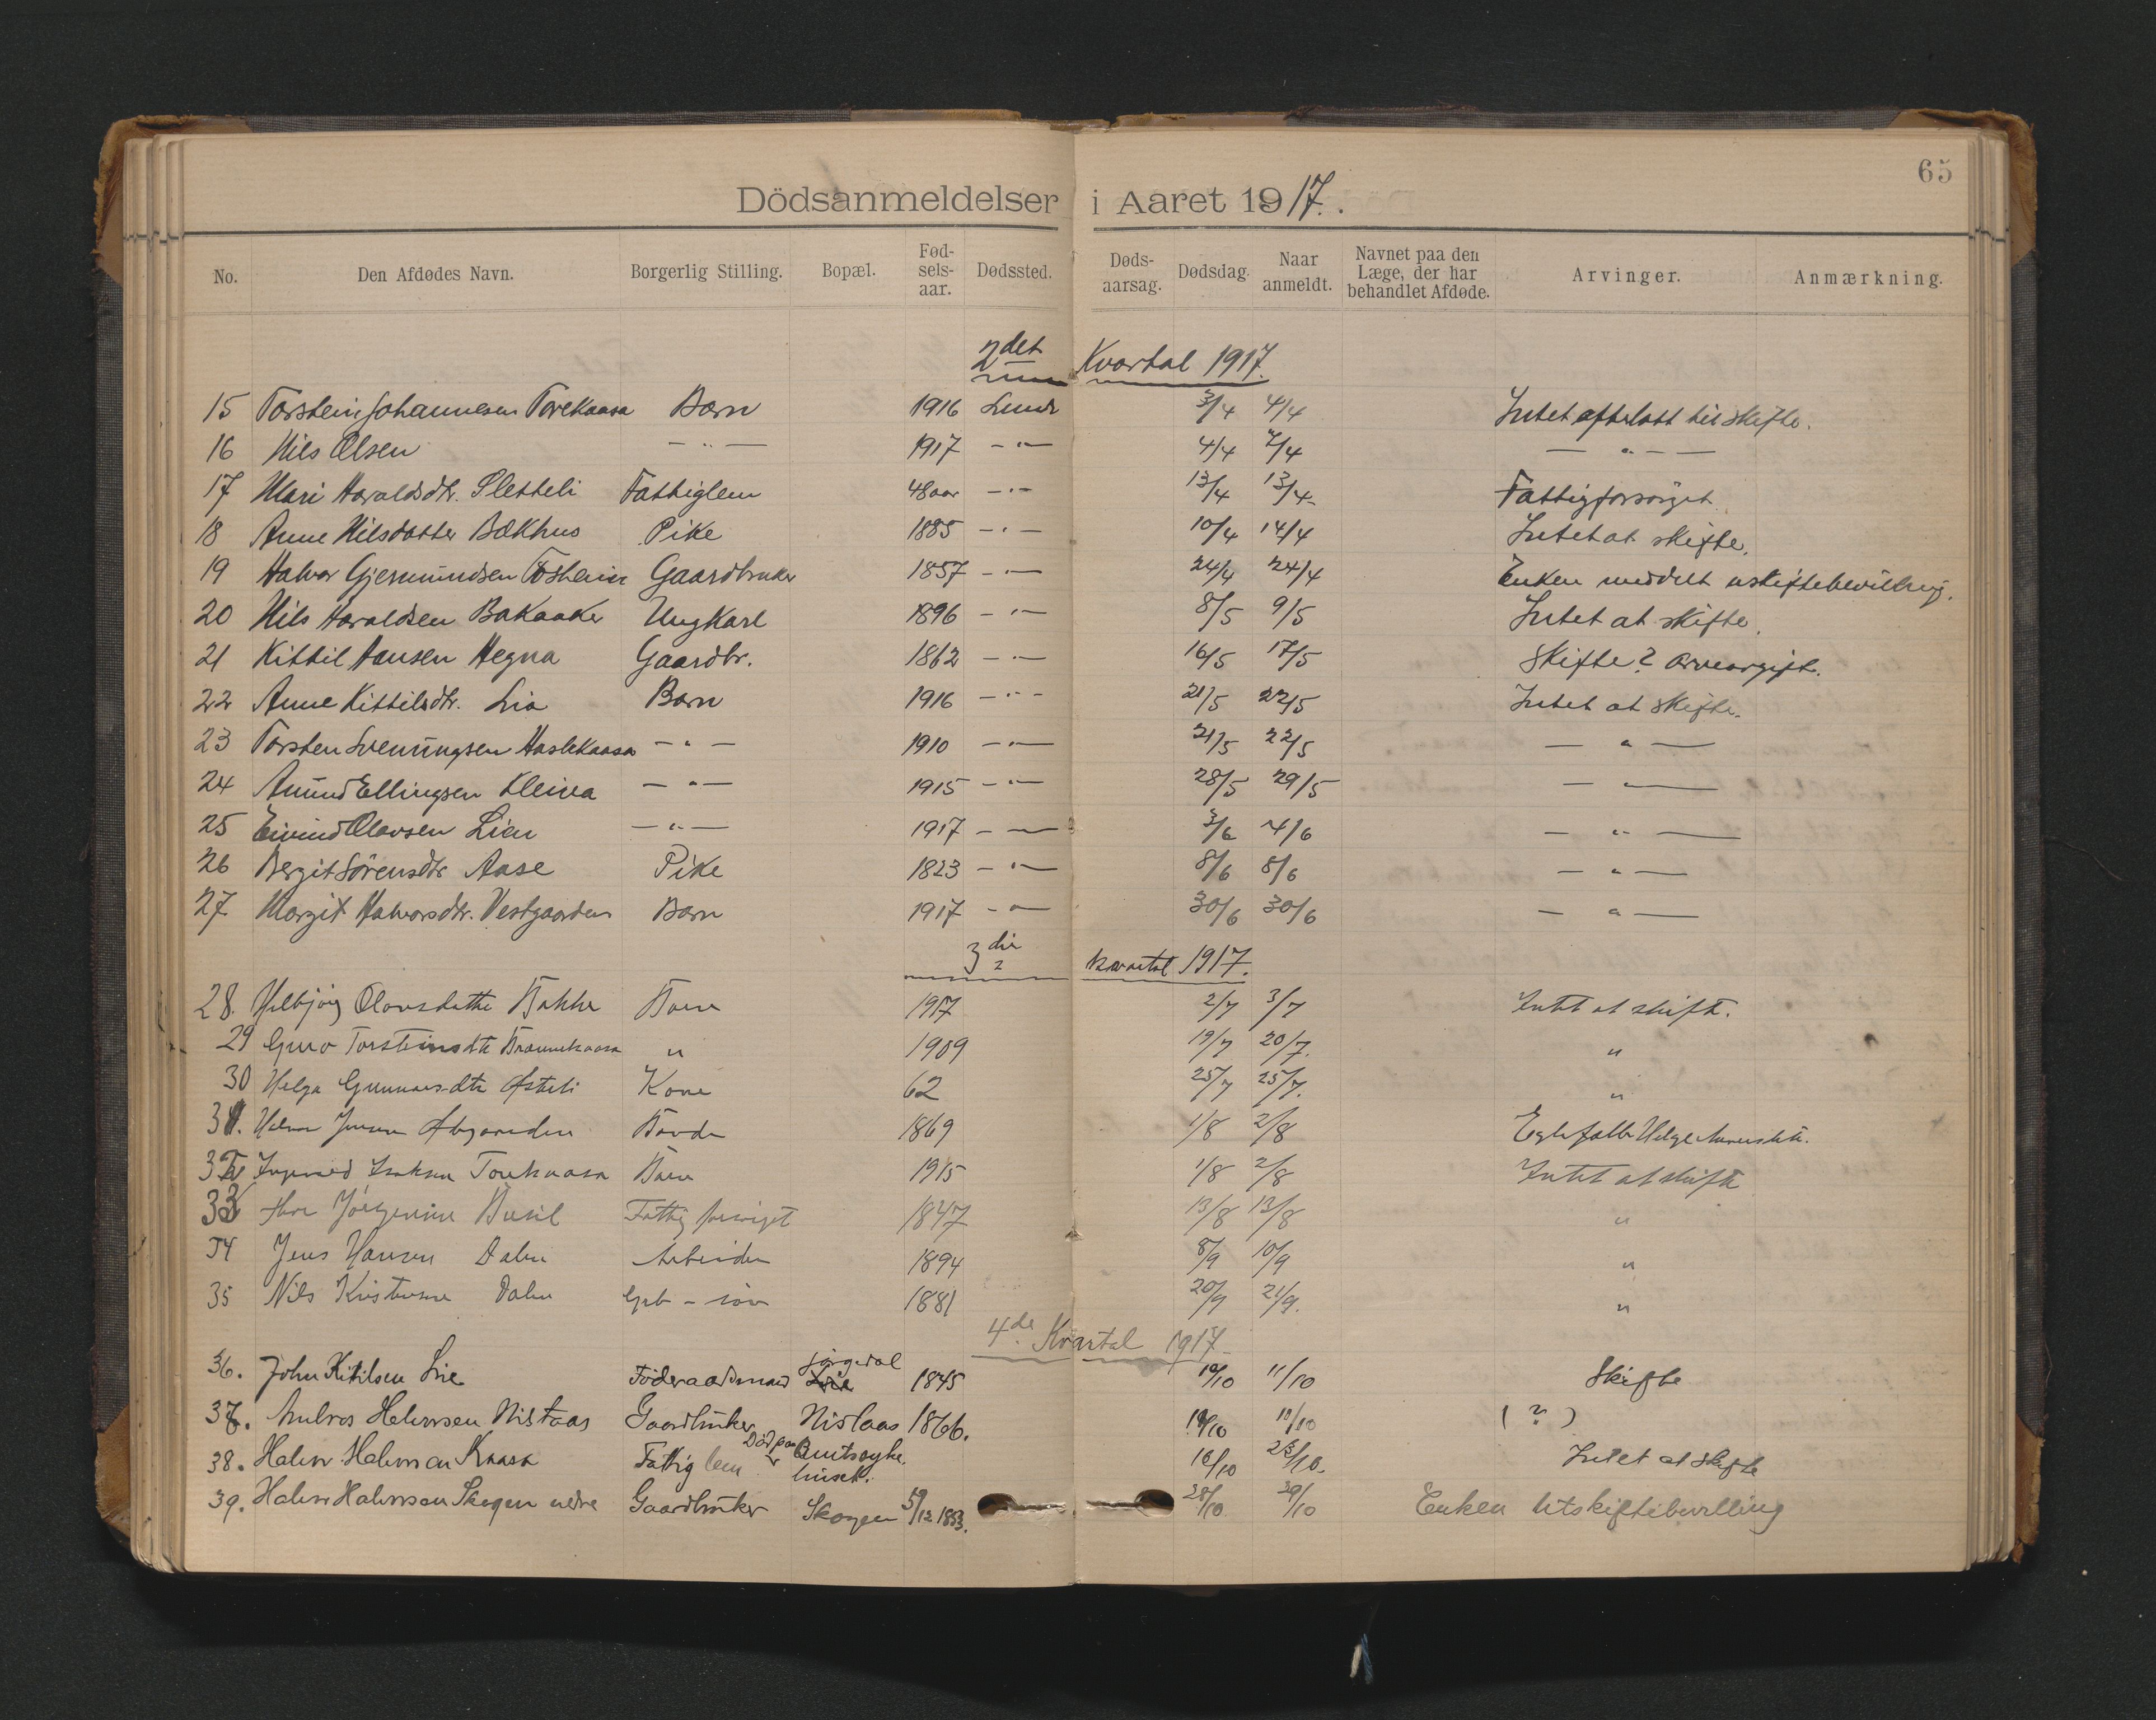 65
Dödsanmeldelser i Aaret 1917.
No. Den Afdødes Navn. Borgerlig Stilling. Bopæl. Fød-sels-aar. Dødssted. Døds-aarsag. Dødsdag. Naar anmeldt. Navnet paa den Læge, der har behandlet Afdøde. Arvinger. Anmærkning.
2det Kvartal 1917.
15 Torstein Johannesen Torekaasa Barn 1916 Lunde 3/4 4/4 Intet efterlatt til skifte.
16 Nils Olsen — " — 1917 — " — 4/4 7/4 — " — —
17 Mari Haraldsdtr. Sletteli Fattiglem 48 aar — " — 13/4 13/4 Fattigforsörget.
18 Anne Nilsdatter Bækhus Pike 1885 — " — 10/4 14/4 Intet at skifte.
19 Halvor Gjermundsen Gaardbruker 1857 — " — 24/4 24/4 Enken meddelt uskiftebevilling.
20 Nils Haraldsen Bakaaker Ungkarl 1896 — " — 8/5 9/5 Intet at skifte.
21 Kittil Hansen Hegna Gaardbr. 1862 — " — 16/5 17/5 Skifte? arveavgift.
22 Anne Kittilsdtr. Lia Barn 1916 — " — 21/5 22/5 Intet at skifte.
23 Torsten Svenungsen Haslekaasa — " — 1910 — " — 21/5 22/5 — " —
24 Amund Ellingsen Kleiva — " — 1915 — " — 28/5 29/5 — " —
25 Eivind Olavsen Lien — " — 1917 — " — 3/6 4/6 — " —
26 Bergit Sörensdtr Aase Pike 1823 — " — 8/6 8/6 — " —
27 Margit Halvorsdtr. Vestgaarden Barn 1917 — " — 30/6 30/6 — " —
3die kvartal 1917.
28. Olavsdatter Bakka Barn 1917 2/7 3/7 Intet at skifte.
29 Guro Torsteinsdtr " 1909 19/7 20/7. "
30 Helga Gunnarsdtr Østeli Kone 62 25/7 25/7. "
31. 1869 1/8 2/8
32 Isaksen Torekaasa Barn 1915 1/8 2/8 Intet at skifte
33 Fattig forsörget 1847 13/8 13/8 "
34 Jens Hansen Dalen Arbeider 1894 8/9 10/9 "
35 Nils Kristensen Dalen Grb - sön 1881 20/9 21/9. "
4de Kvartal 1917
36. John Kitilsen Lie Föderaadsmand Jörgedal 1845 10/10 11/10 Skifte
37. Halvorsen Nistaas Gaardbruker Nistaas 1866. 10/10 11/10 ( ? )
38. Halvor Halvorsen Kaasa Fattig lem Död paa Amtssyke huset. 16/10 23/10. Intet at skifte
39. Halvor Halvorsen Skogen nedre Gaardbruker Skogen 5/12 1853. 28/10 29/10 Enken Uskiftebevilling